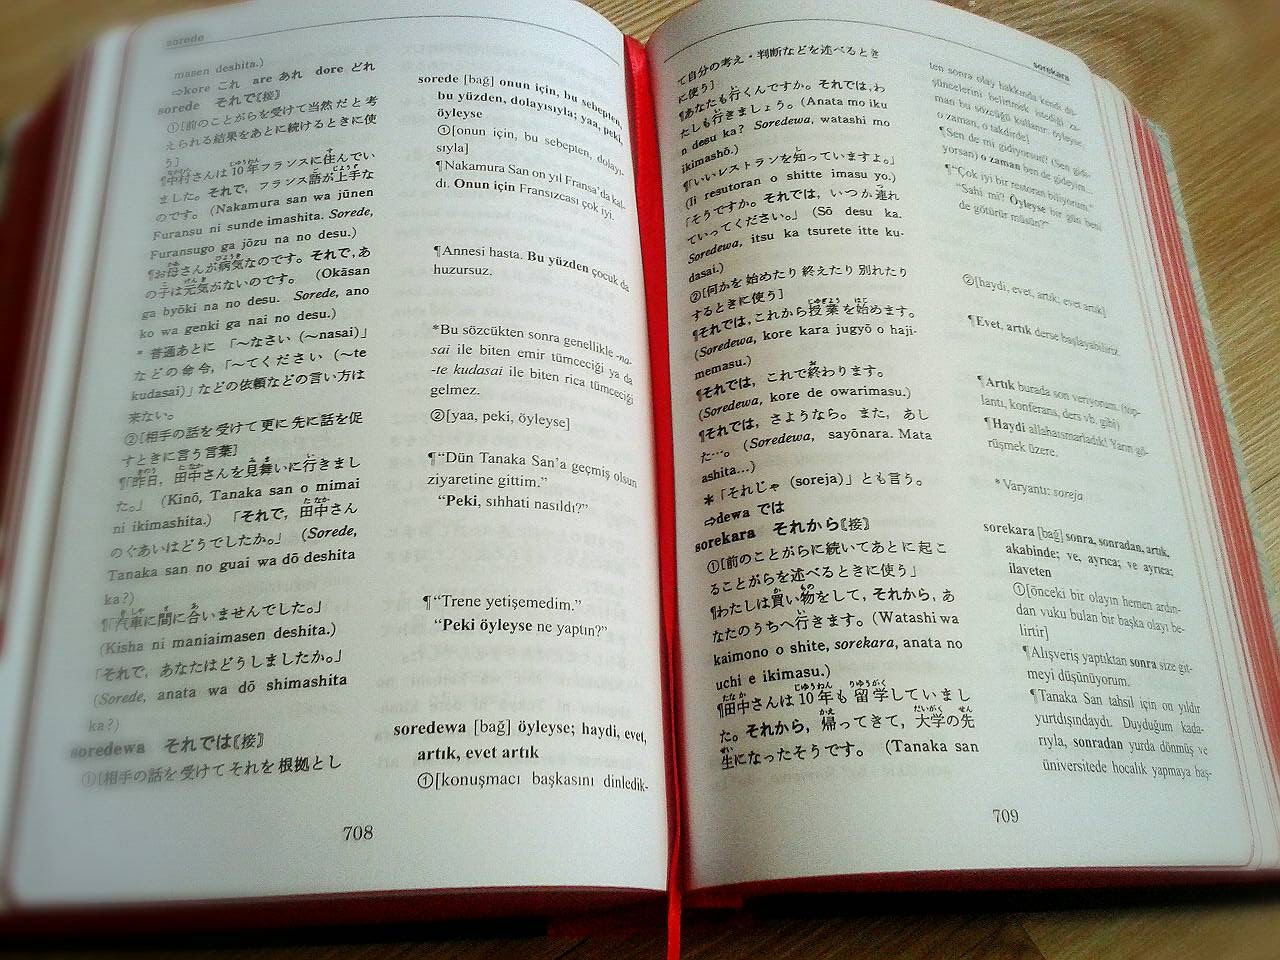 sorede
masen deshita.)
⇨kore これ are あれ dore どれ
sorede それで〘接〙
①[前のことがらを受けて当然だと考
えられる結果をあとに続けるときに使
う]
¶中村さんは10年フランスに住んでい
ました。それで，フランス語が上手な
のです。 (Nakamura san wa jūnen
Furansu ni sunde imashita. Sorede,
Furansugo ga jōzu na no desu.)
¶お母さんが病気なのです。それで，あ
の子は元気がないのです。 (Okāsan
ga byōki na no desu. Sorede, ano
ko wa genki ga nai no desu.)
* 普通あとに 「〜なさい (〜nasai)」
などの命令，「〜てください (〜te
kudasai)」などの依頼などの言い方は
来ない。
②[相手の話を受けて更に先に話を促
すときに言う言葉]
¶「昨日，田中さんを見舞いに行きまし
た。」 (Kinō, Tanaka san o mimai
ni ikimashita.) 「それで，田中さん
のぐあいはどうでしたか。」 (Sorede,
Tanaka san no guai wa dō deshita
ka?)
¶「汽車に間に合いませんでした。」
(Kisha ni maniaimasen deshita.)
「それで，あなたはどうしましたか。」
(Sorede, anata wa dō shimashita
ka?)
soredewa それでは〘接〙
①[相手の話を受けてそれを根拠とし
sorede [bağ] onun için, bu sebepten,
bu yüzden, dolayısıyla; yaa, peki,
öyleyse
①[onun için, bu sebepten, dolayı-
sıyla]
¶Nakamura San on yıl Fransa'da kal-
dı. Onun için Fransızcası çok iyi.
¶Annesi hasta. Bu yüzden çocuk da
huzursuz.
*Bu sözcükten sonra genellikle -na-
sai ile biten emir tümceciği ya da
-te kudasai ile biten rica tümceciği
gelmez.
②[yaa, peki, öyleyse]
¶“Dün Tanaka San'a geçmiş olsun
ziyaretine gittim.”
“Peki, sıhhati nasıldı?”
¶“Trene yetişemedim.”
“Peki öyleyse ne yaptın?”
soredewa [bağ] öyleyse; haydi, evet,
artık, evet artık
①[konuşmacı başkasını dinledik-
708
sorekara
て自分の考え・判断などを述べるとき
に使う]
¶あなたも行くんですか。それでは，わ
たしも行きましょう。(Anata mo iku
n desu ka? Soredewa, watashi mo
ikimashō.)
¶「いいレストランを知っていますよ。」
(Ii resutoran o shitte imasu yo.)
「そうですか。それでは，いつか連れ
ていってください。」 (Sō desu ka.
Soredewa, itsu ka tsurete itte ku-
dasai.)
②[何かを始めたり終えたり別れたり
するときに使う]
¶それでは，これから授業を始めます。
(Soredewa, kore kara jugyō o haji-
memasu.)
¶それでは，これで終わります。
(Soredewa, kore de owarimasu.)
¶それでは，さようなら。また，あし
た…。 (Soredewa, sayōnara. Mata
ashita...)
＊「それじゃ (soreja)」とも言う。
⇨dewa では
sorekara それから〘接〙
①[前のことがらに続いてあとに起こ
ることがらを述べるときに使う」
¶わたしは買い物をして，それから，あ
なたのうちへ行きます。(Watashi wa
kaimono o shite, sorekara, anata no
uchi e ikimasu.)
¶田中さんは10年も留学していまし
た。それから，帰ってきて，大学の先
生になったそうです。 (Tanaka san
ten sonra olay hakkında kendi dü-
şüncelerini belirtmek istediği za-
man bu sözcüğü kullanır: öyleyse,
o zaman, o takdirde]
¶Sen de mi gidiyorsun? (Sen gidi-
yorsan) o zaman ben de gideyim...
¶“Çok iyi bir restoran biliyorum.”
“Sahi mi? Öyleyse bir gün beni
de götürür müsün?”
②[haydi, evet, artık; evet artık]
¶Evet, artık derse başlayabiliriz.
¶Artık burada son veriyorum. (top-
lantı, konferans, ders vb. gibi)
¶Haydi allahaısmarladık! Yarın gö-
rüşmek üzere.
* Varyantı: soreja
sorekara [bağ] sonra, sonradan, artık,
akabinde; ve, ayrıca; ve ayrıca;
ilaveten
①[önceki bir olayın hemen ardın-
dan vuku bulan bir başka olayı be-
lirtir]
¶Alışveriş yaptıktan sonra size git-
meyi düşünüyorum.
¶Tanaka San tahsil için on yıldır
yurtdışındaydı. Duyduğum kada-
rıyla, sonradan yurda dönmüş ve
üniversitede hocalık yapmaya baş-
709